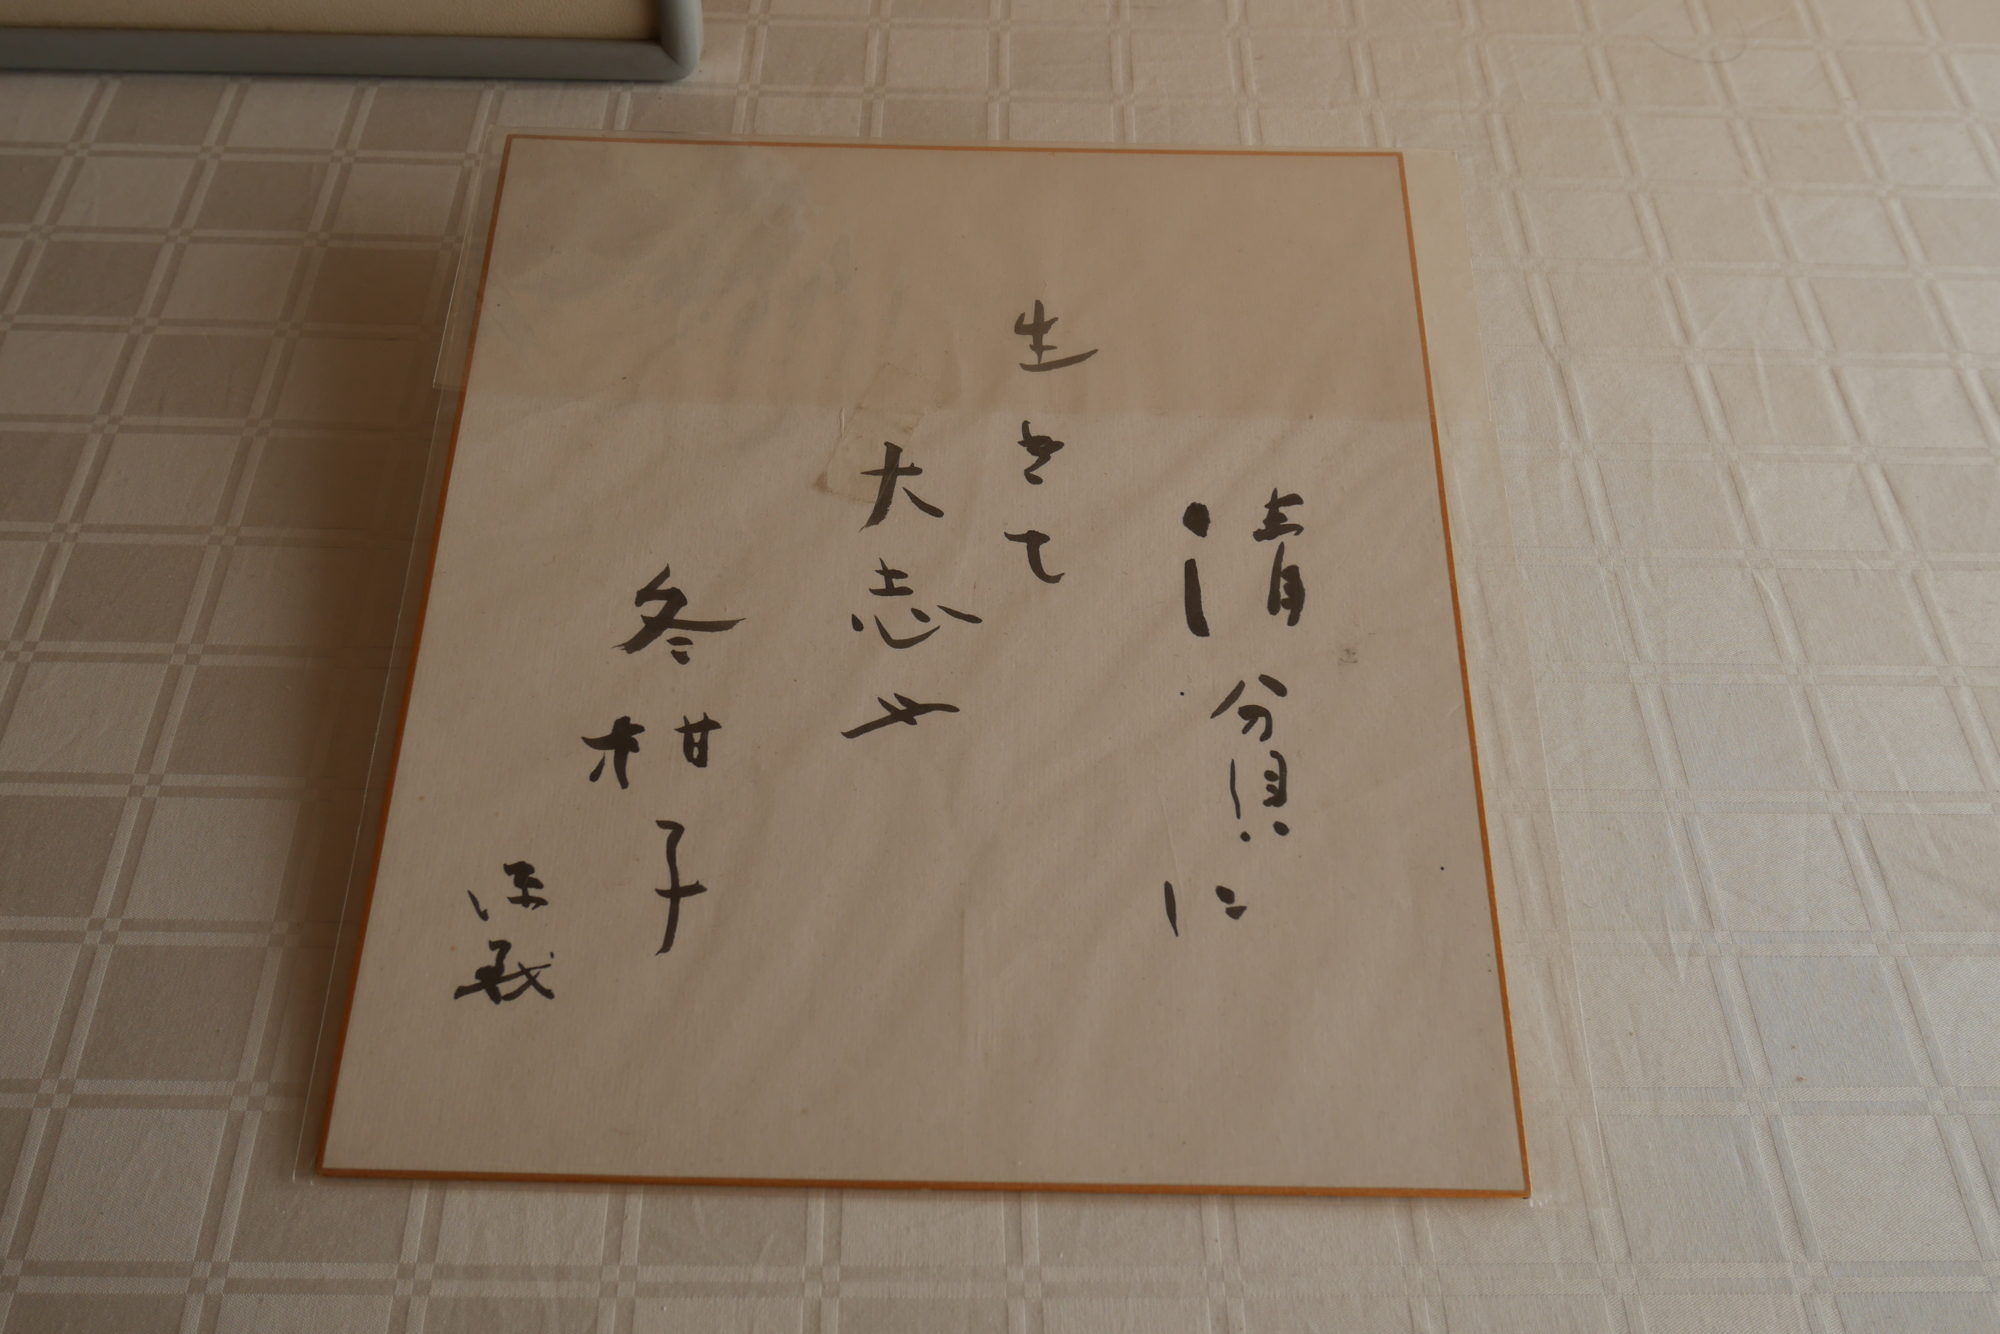 清貧に
生きて
大志や
冬柑子
保義